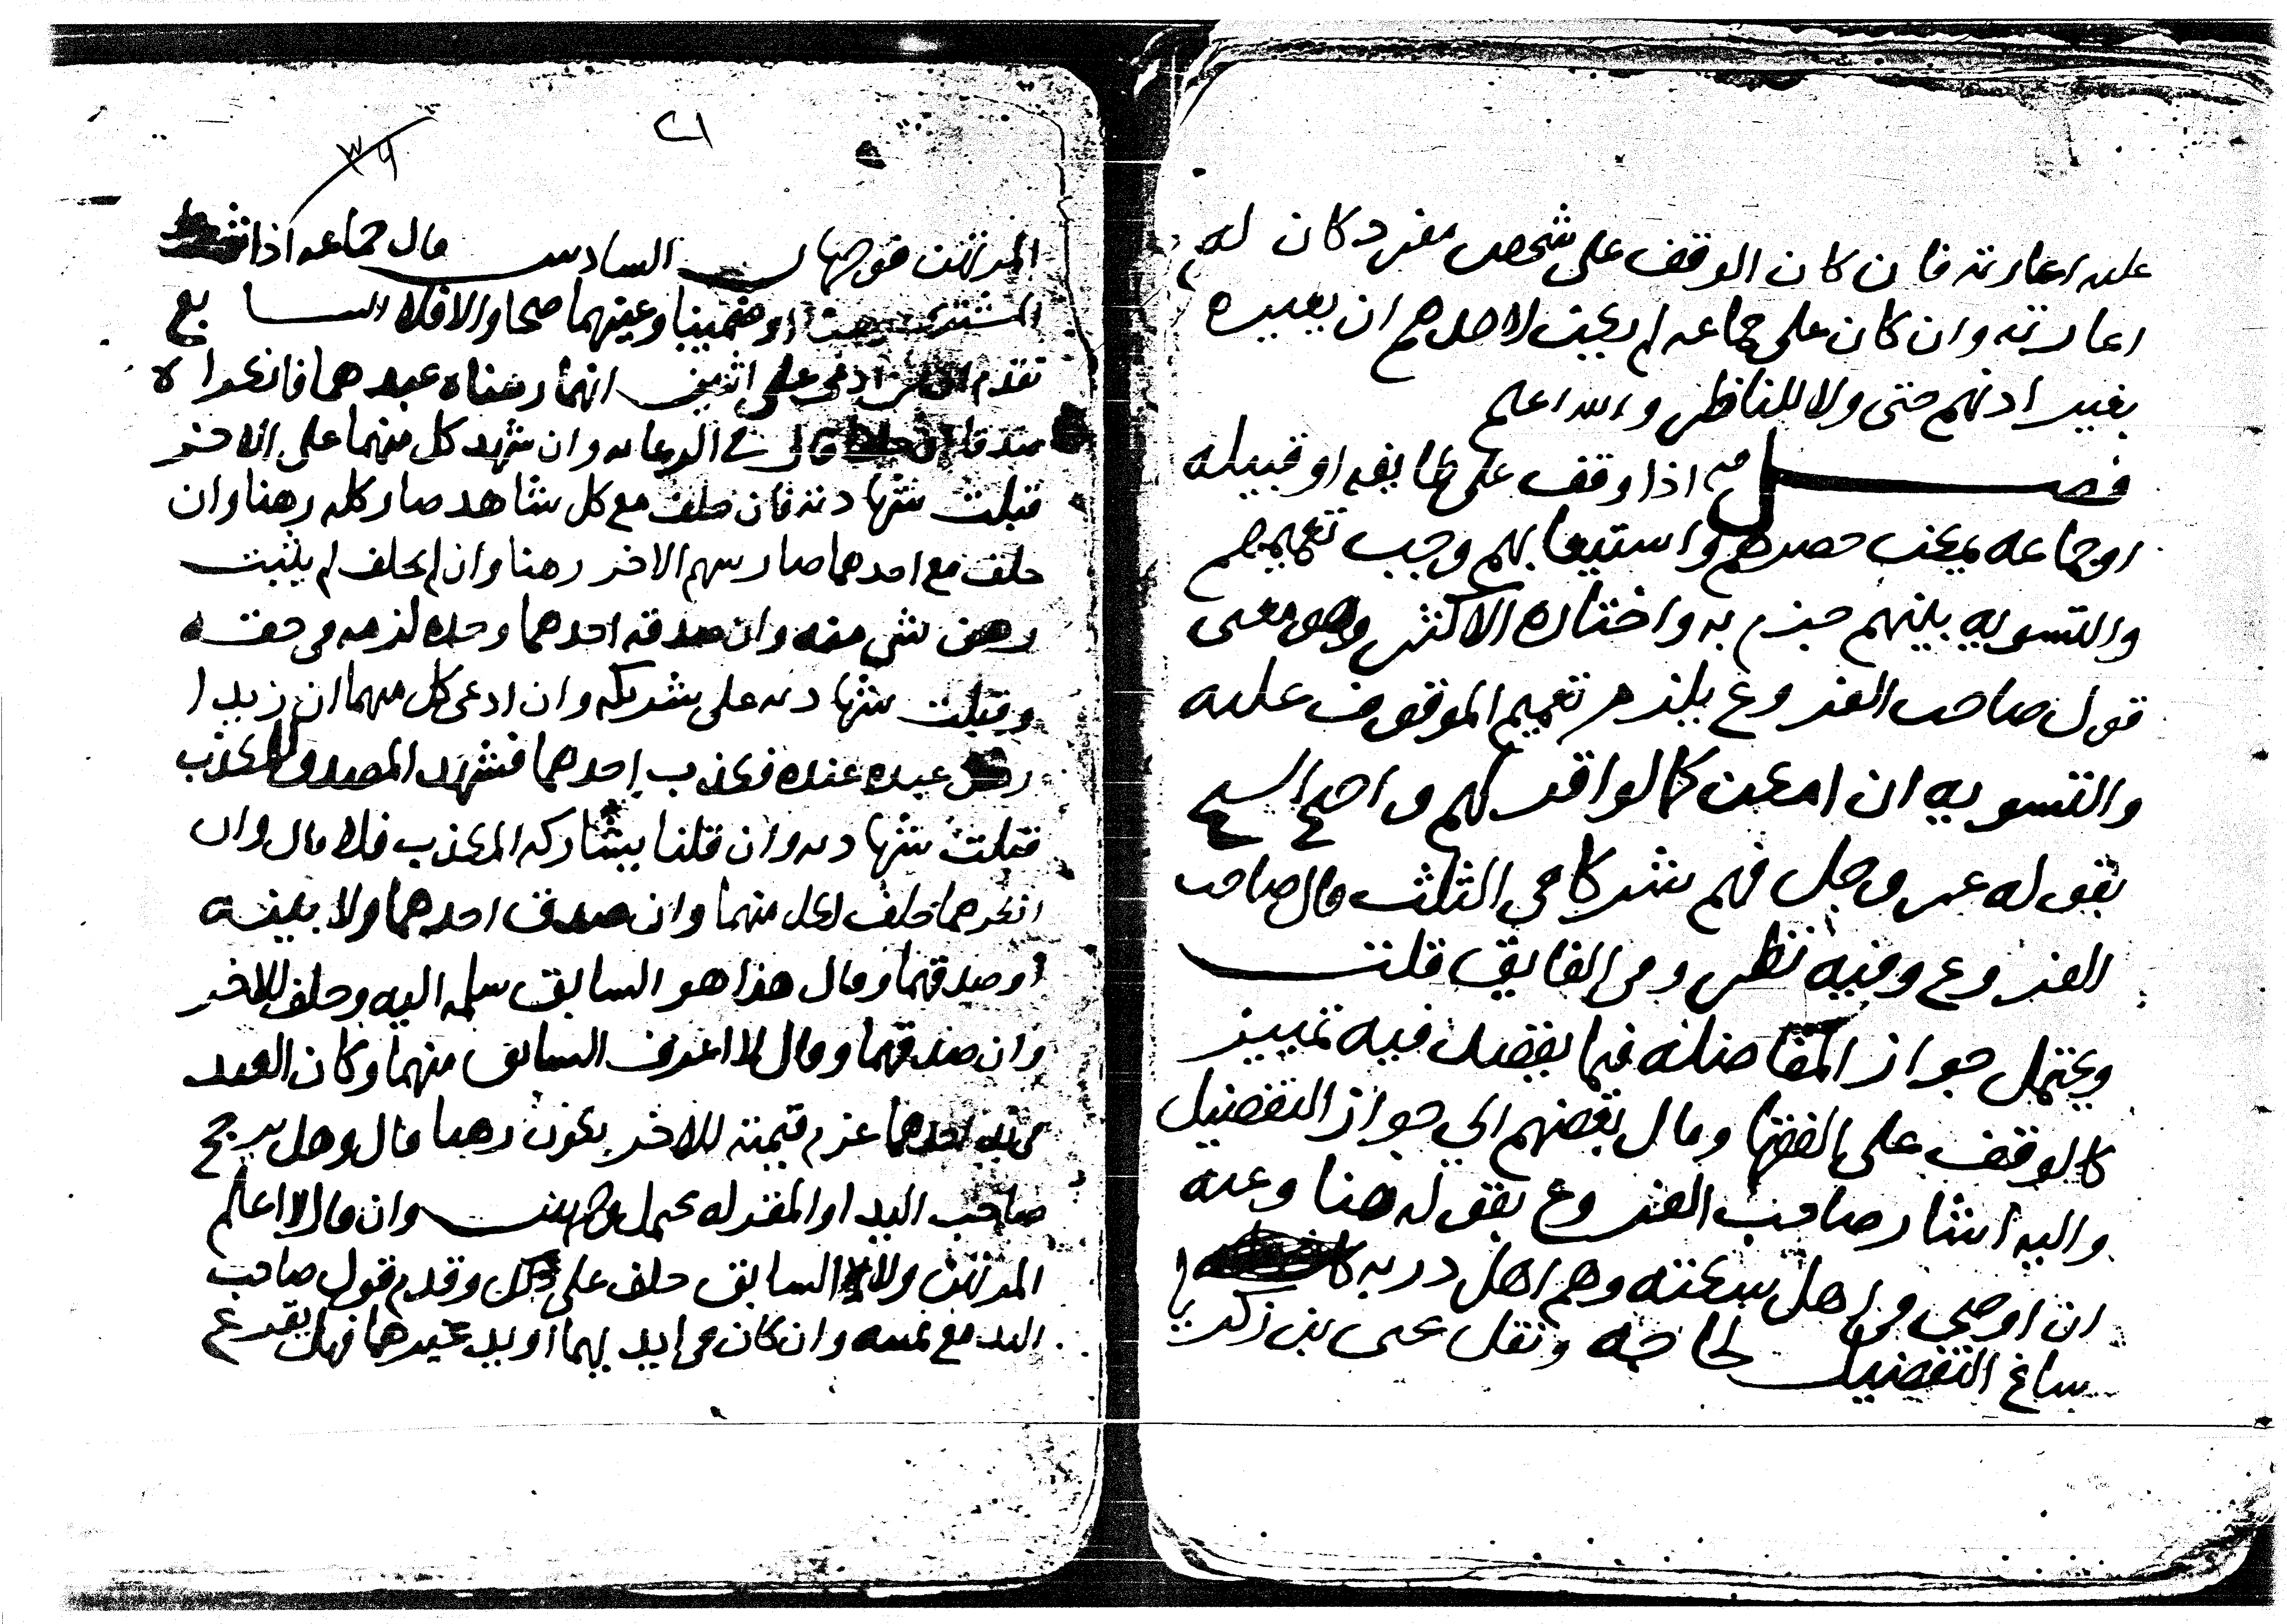 عليه اعارته فان كان الوقف على شخص مفرد كان له
اعارته وان كان على جماعه لم يكن لاحدهم ان يعيره
بغير اذنهم حتى ولا للناظر والله اعلم
فصل اذا وقف على طايفه او قبيله
او جماعه يمكن حصرهم واستيعابهم وجب تعميمهم
والتسويه بينهم جزم به واختاره الاكثر وهو معنى
قول صاحب الفروع يلزم تعميم الموقوف عليه
والتسويه ان امكن كما لو اقر لهم واحتج الشيخ
بقوله عز وجل فهم شركا في الثلث قال صاحب
الفروع وفيه نظر وفي الفايق قلت
ويحتمل جواز المفاضله فيما يفضل فيه تمييز
كالوقف على الفقها ومال بعضهم الى جواز التفضيل
واليه اشار صاحب الفروع بقوله هنا وعنه
ان اوصى في اهل سكته وهم اهل دربه
ساغ التفضيل لحاجه ونقل يحيى بن زكريا
٢١
٣٩
المرتهن فوجهان السادس قال جماعه اذا
رهنا او ضمينا وعينهما صحا والا فلا السابع
تقدم ادعى على اثنين انهما رهناه عبدهما فانكراه
قال في الرعايه وان شهد كل منهما على الاخر
قبلت شهادته فان حلف مع كل شاهد صار كله رهنا وان
حلف مع احدهما صار سهم الاخر رهنا وان لم يحلف لم يثبت
رهن شي منه وان صدقه احدهما وحده لزمه في حقه
وقبلت شهادته على شريكه وان ادعى كل منهما ان زيدا
رهن عبده عنده فكذب احدهما فشهد المصدق للمكذب
قبلت شهادته وان قلنا يشاركه المكذب فلا قال وان
انكرهما حلف لكل منهما وان صدق احدهما ولا بينه
او صدقهما وقال هذا هو السابق سلمه اليه وحلف للاخر
وان صدقهما وقال لا اعرف السابق منهما وكان العبد
في يد احدهما غرم قيمته للاخر يكون رهنا قال وهل يرجح
صاحب اليد او المقر له يحتمل وجهين وان قال لا اعلم
المرتهن ولا السابق حلف على ذلك وقدم قول صاحب
اليد مع يمينه وان كان في ايديهما او يد غيرهما فهل يقرع